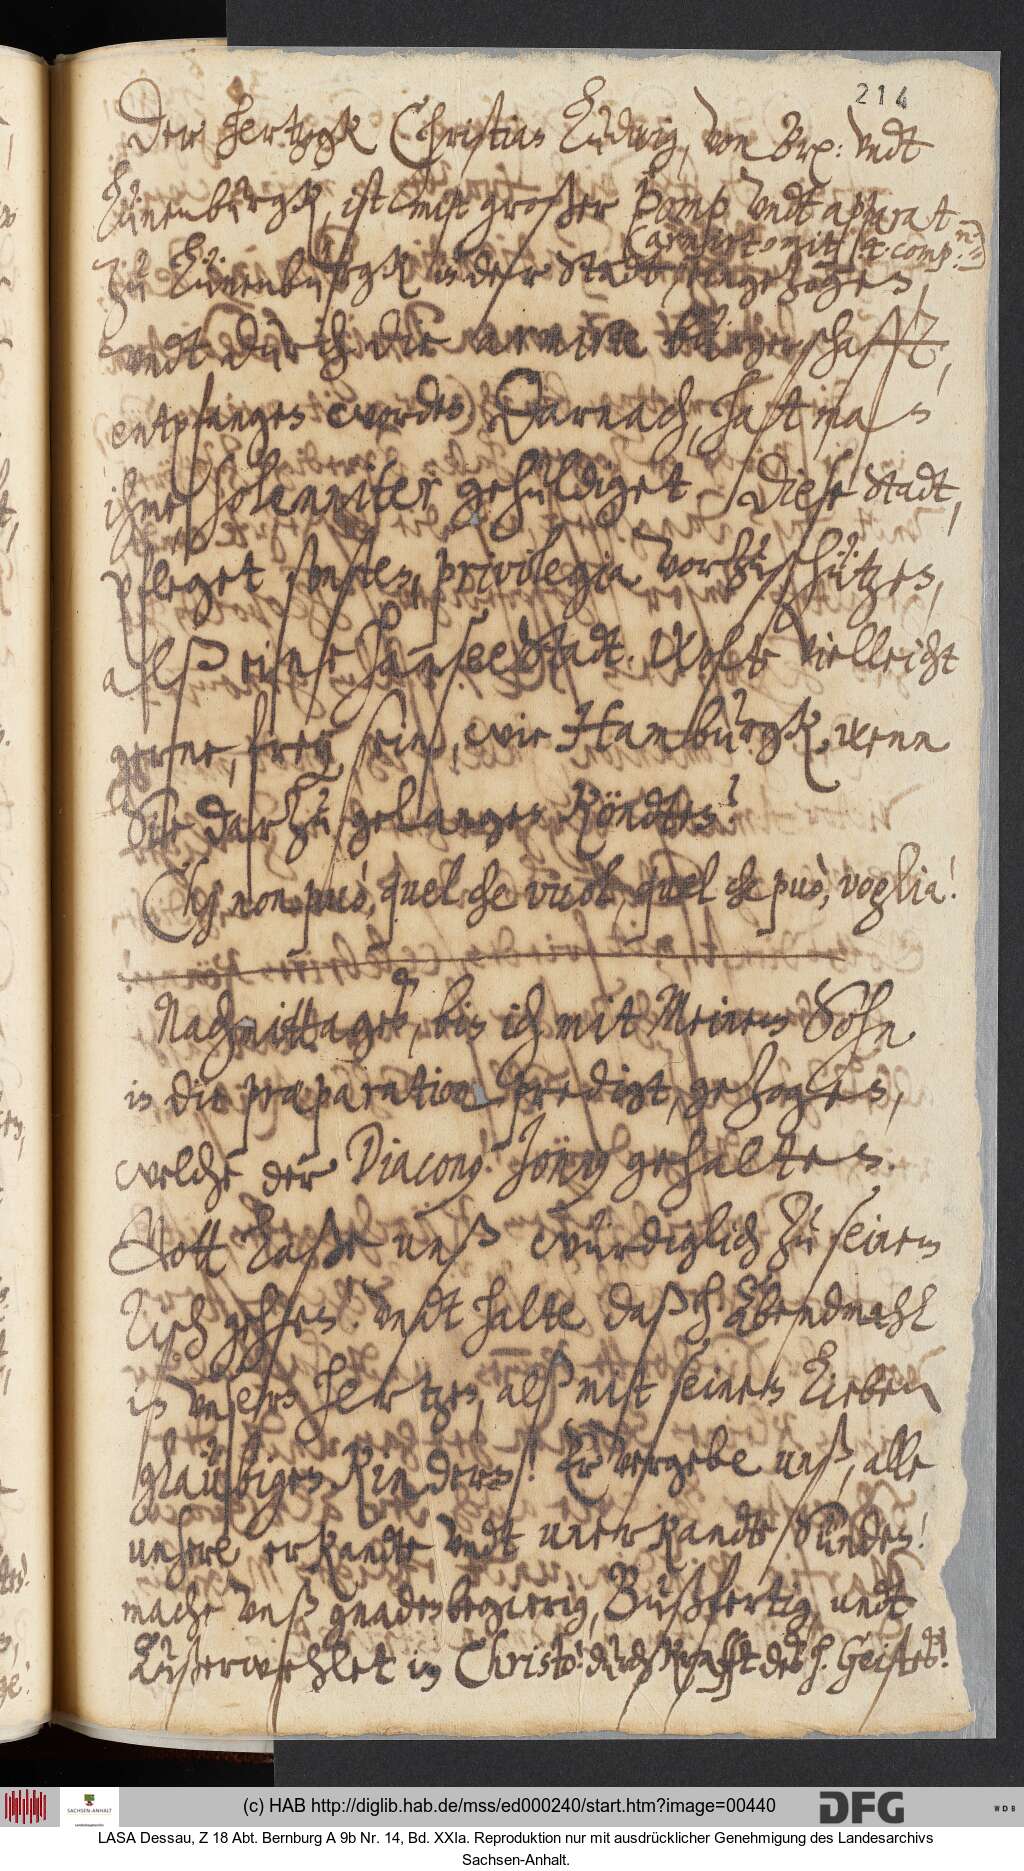 214
Der hertzogk Christian Ludwig, von Brx: vndt
Lünenburgk, ist mitt großer Pomp vndt apparat
(armirt mit / 4 comp.
zu Lünenburgk in der Stadt, eingezogen,
vndt durch die armirte bürgerschafft,
entpfangen worden, Darnach, hatt man
ihme solenniter, gehuldiget. Diese Stadt,
pfleget sonsten, privilegia vorzuschützen,
alß eine hansee Stadt. Wolte vielleicht
gerne, frey sein, wie Hamburgk, wenn
Sie darzu gelangen köndten?
Chj non può, quel che vuol, quel che può, voglia!
Nachmittages, bin ich mit Meinem Sohn
in die præparation predigt, gezogen,
welche der Diacony: Jönius gehalten.
Gott laße unß würdiglich zu seinem
Tisch gehen! vndt halte daß h. Abendmahl
in vnsern hertzen, alß mitt seinen Lieben
gläubigen Kindern! Er vergebe unß, alle
unsere erkandte vndt unerkandte Sünden!
mache vnß gnadenbegierig, Bußfertig, undt
Außerwehlet in Christo! durch Krafft des h. Geistes!
(c) HAB http://diglib.hab.de/mss/ed000240/start.htm?image=00440
SACHSEN-ANHALT
DFG
WDB
LASA Dessau, Z 18 Abt. Bernburg A 9b Nr. 14, Bd. XXIa. Reproduktion nur mit ausdrücklicher Genehmigung des Landesarchivs
Sachsen-Anhalt.